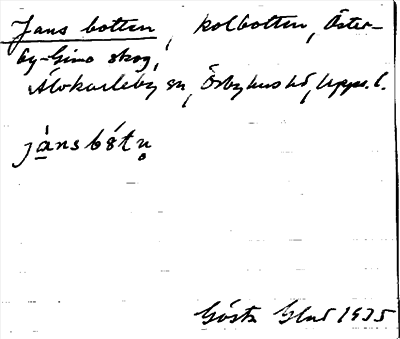 Jans botten, kolbotten, Öster-
by-Gimo skog,
Älvkarleby sn, Örbyhus hd, Upps. l.
jànsbót
Gösta 1935